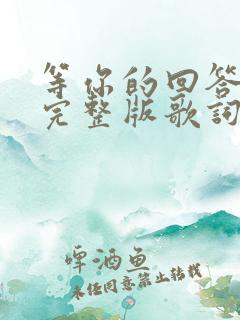 等你的回答
完整版歌词
啤酒鱼
未经同意禁止转载